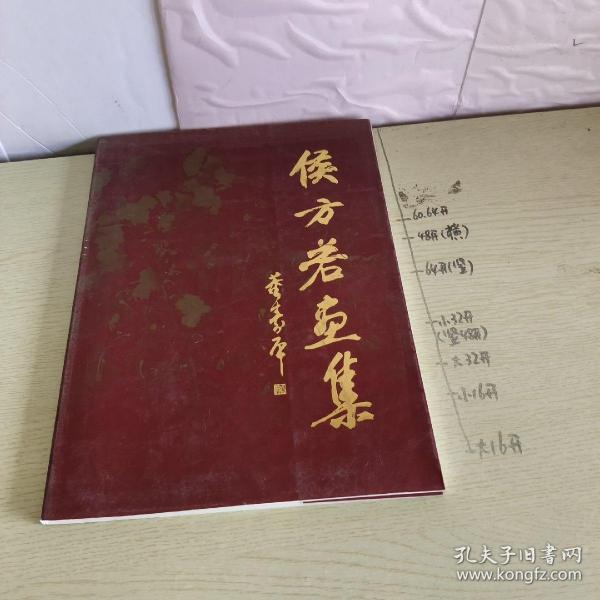 侯方若画集
董寿平
60.64开
48开(横)
64开(竖)
小32开
(竖48开)
大32开
小16开
大16开
孔夫子旧书网
www.kongfz.com